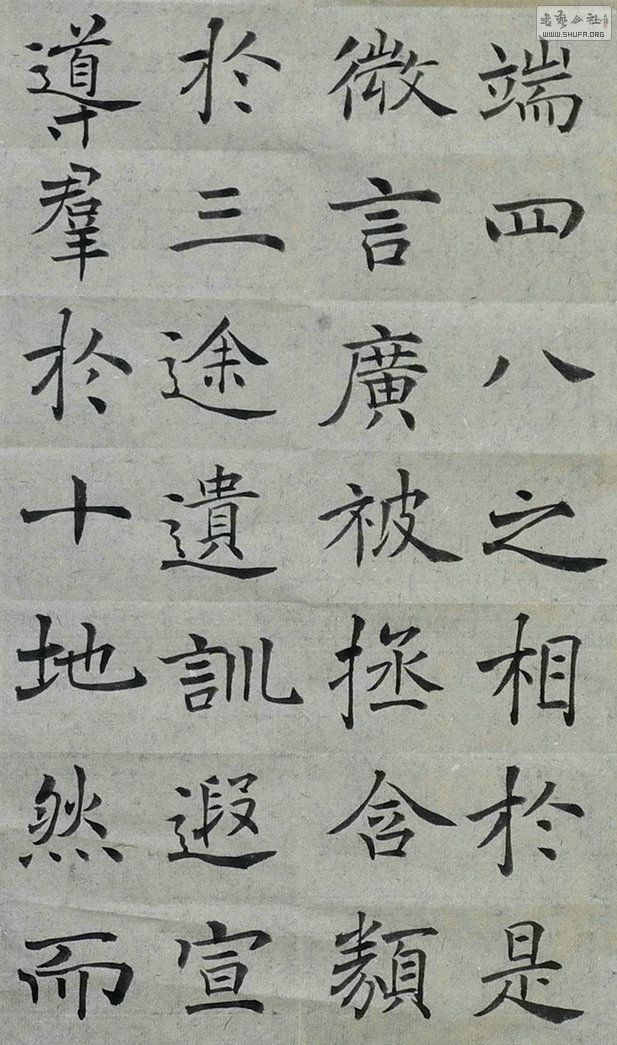 端四八之相於是
微言廣被拯含類
於三途遺訓遐宣
導羣於十地然而
書藝公社
WWW.SHUFA.ORG